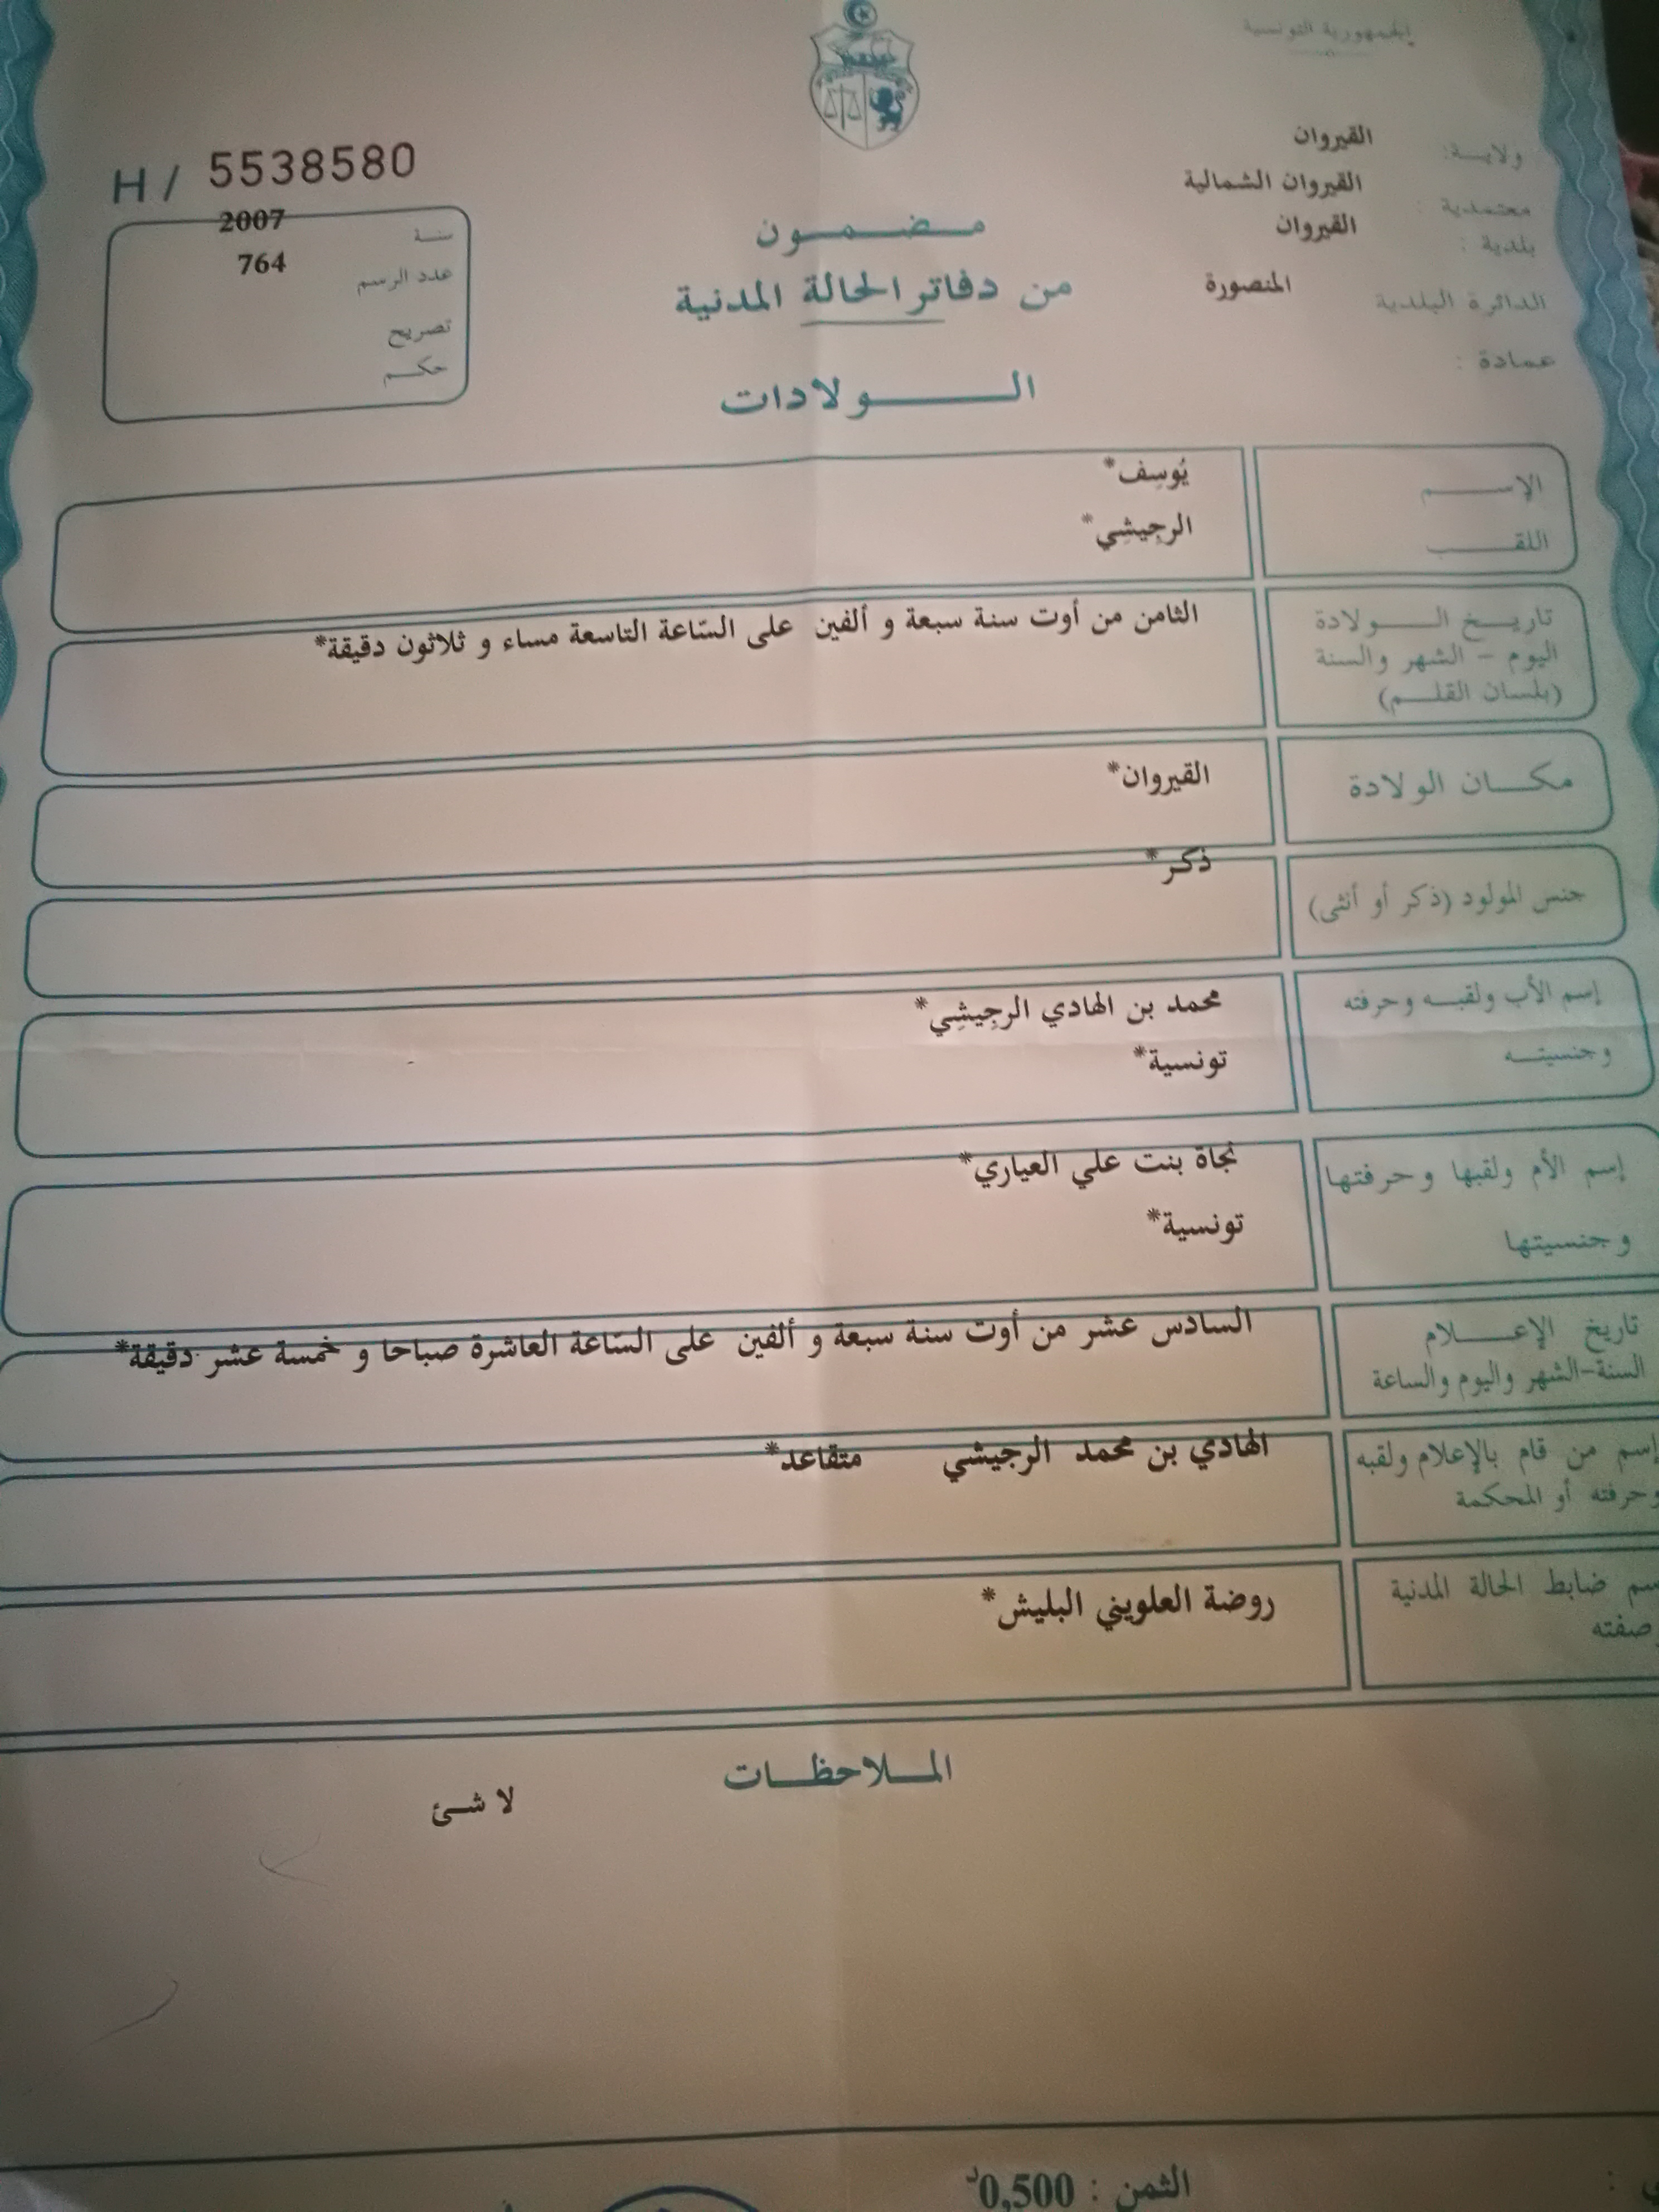 الجمهورية التونسية
ولايـــة: القيروان
معتمدية : القيروان الشمالية
بلدية : القيروان
الدائرة البلدية المنصورة
عمادة :
H / 5538580
سنـة 2007
عدد الرسم 764
تصريح
حكـم
مـضـمـون
من دفاتر الحالة المدنية
الـولادات
الإســم يُوسِف*
اللقــب الرجِيشِي*
تاريـخ الـولادة الثامن من أوت سنة سبعة و ألفين على السّاعة التاسعة مساء و ثلاثون دقيقة*
اليوم - الشهر والسنة
(بلسان القلـم)
مكـان الولادة القيروان*
جنس المولود (ذكر أو أنثى) ذكر*
إسم الأب ولقبـه وحرفته محمد بن الهادي الرجِيشِي*
وجنسيتـه تونسية*
إسم الأم ولقبها وحرفتها نجاة بنت علي العياري*
وجنسيتها تونسية*
تاريخ الإعـلام السادس عشر من أوت سنة سبعة و ألفين على السّاعة العاشرة صباحا و خمسة عشر دقيقة*
السنة-الشهر واليوم والساعة
إسم من قام بالإعلام ولقبه الهادي بن محمد الرجيشي متقاعد*
وحرفته أو المحكمة
سم ضابط الحالة المدنية روضة العلويني البليش*
صفته
المـلاحظـات
لا شئ
الثمن : 0,500د